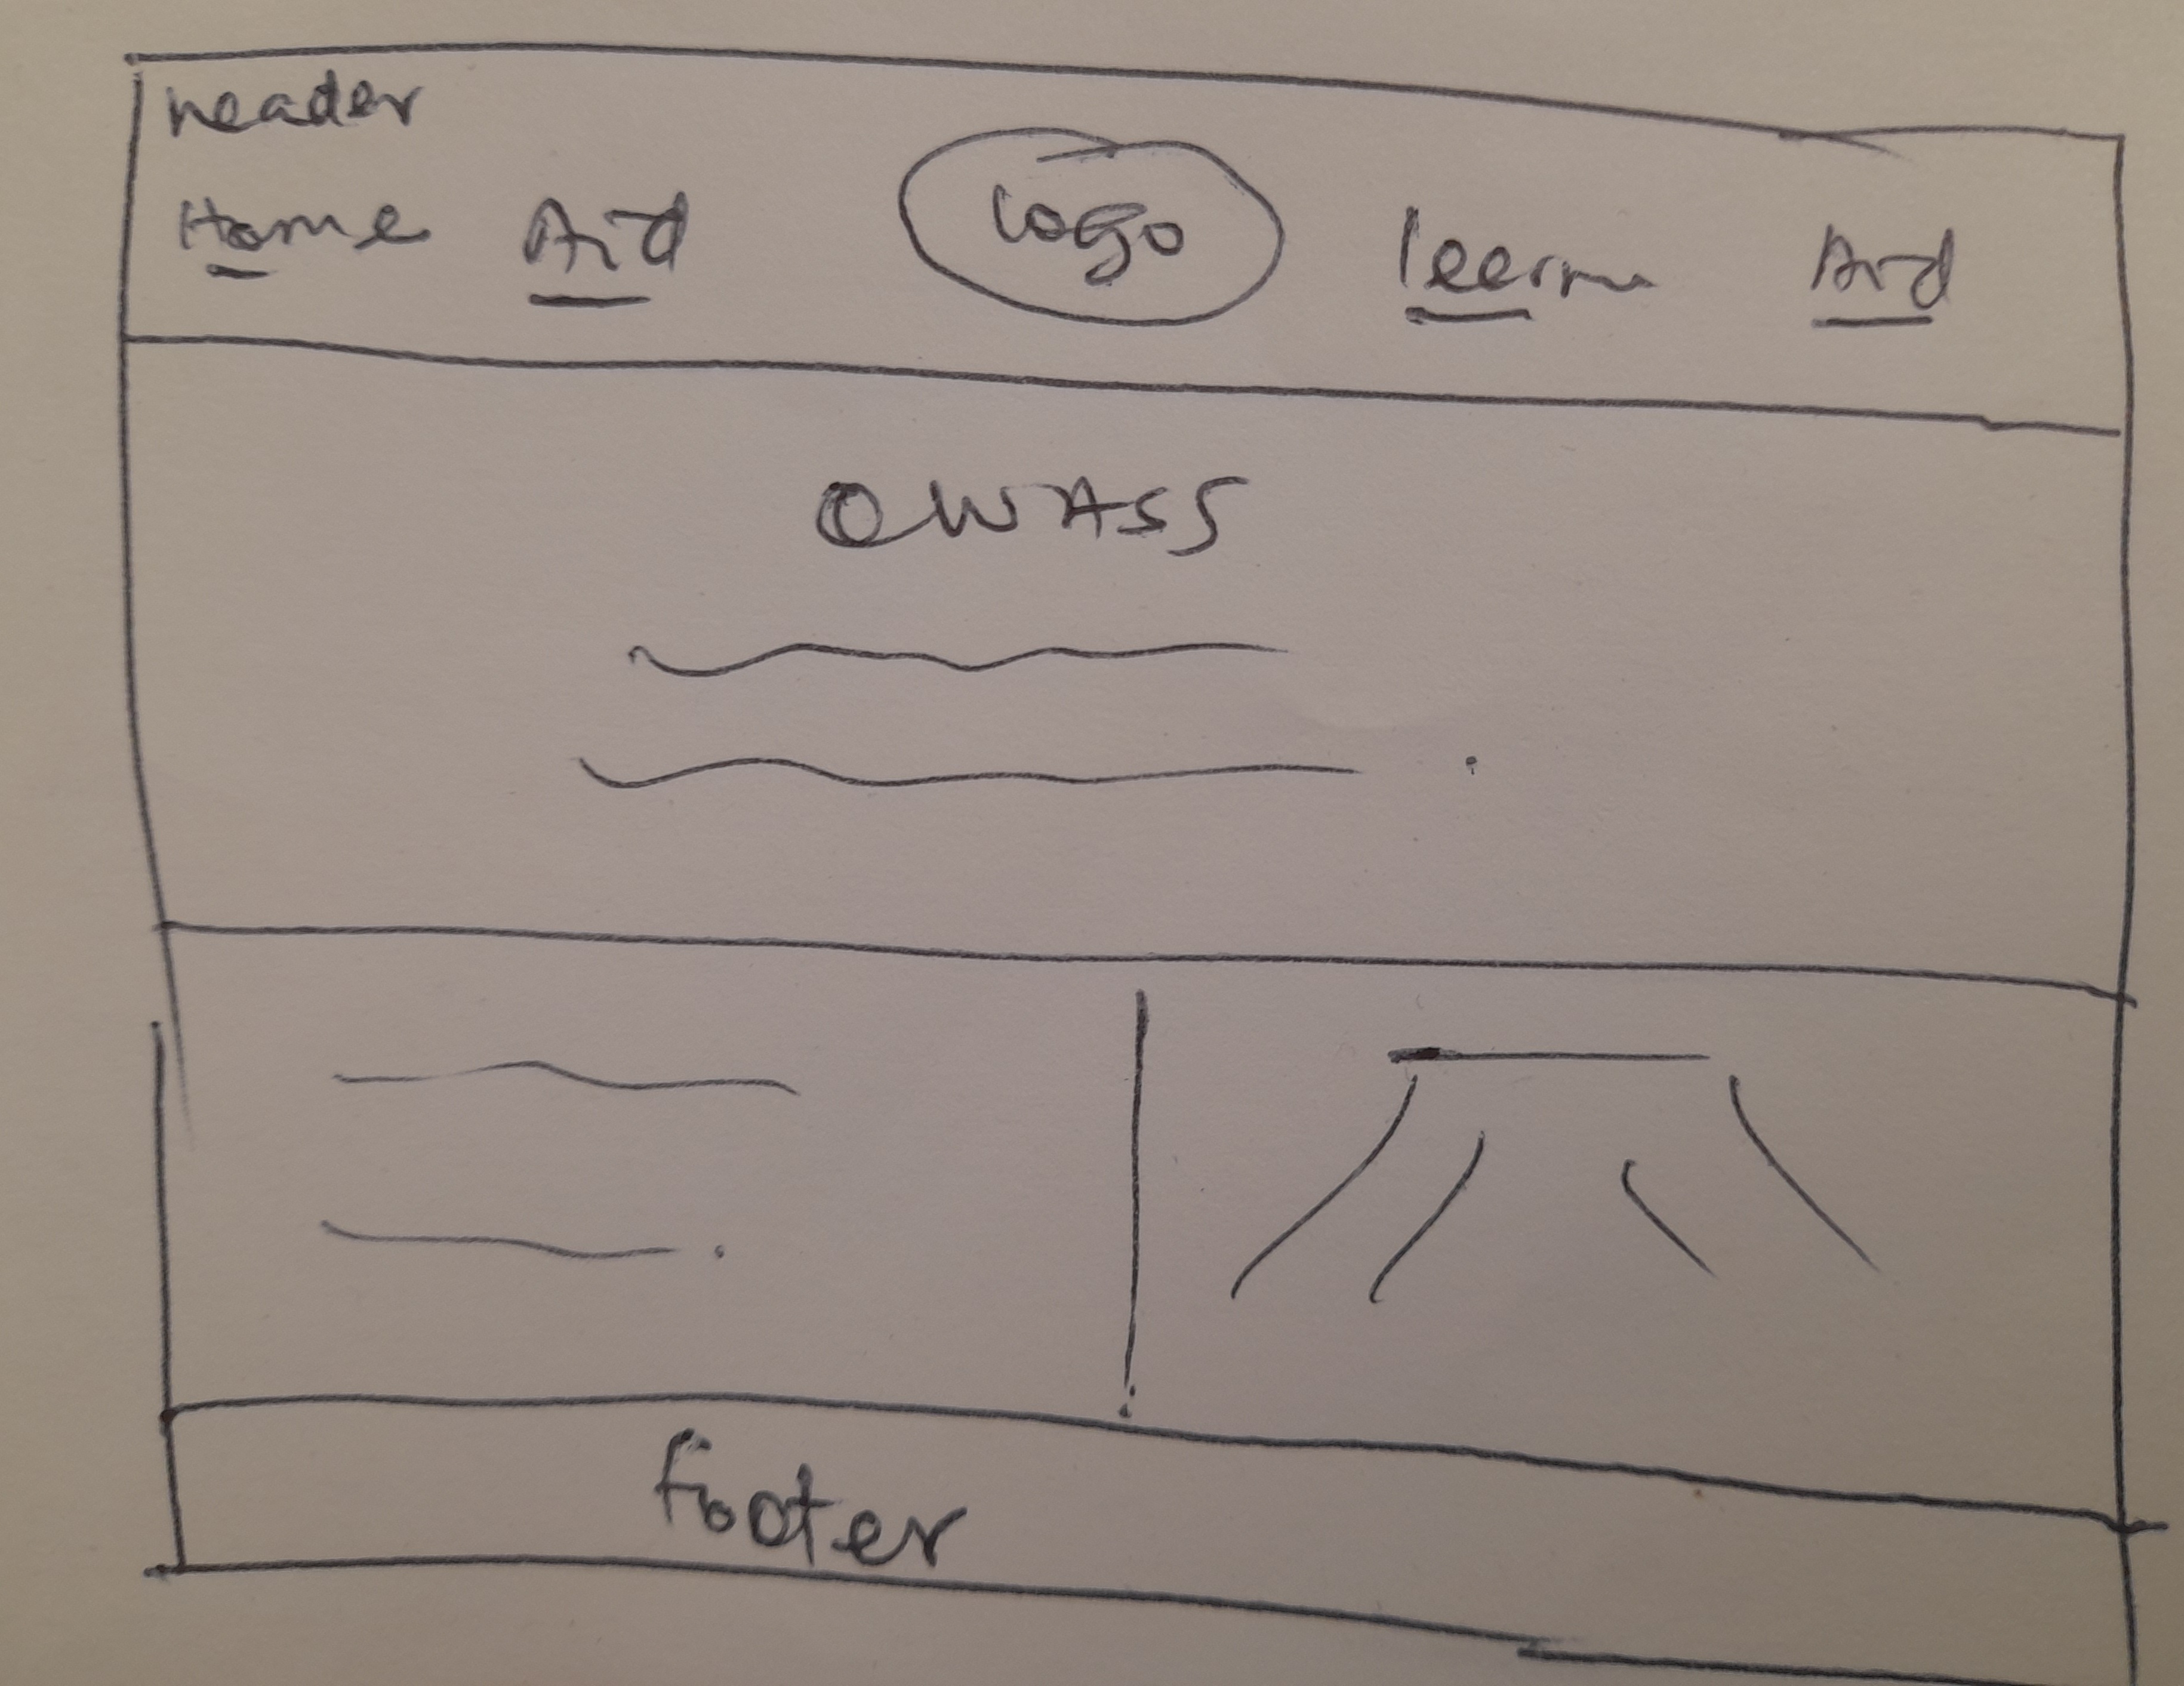 header
Home Aid Logo leerm Aid
OWASS
footer